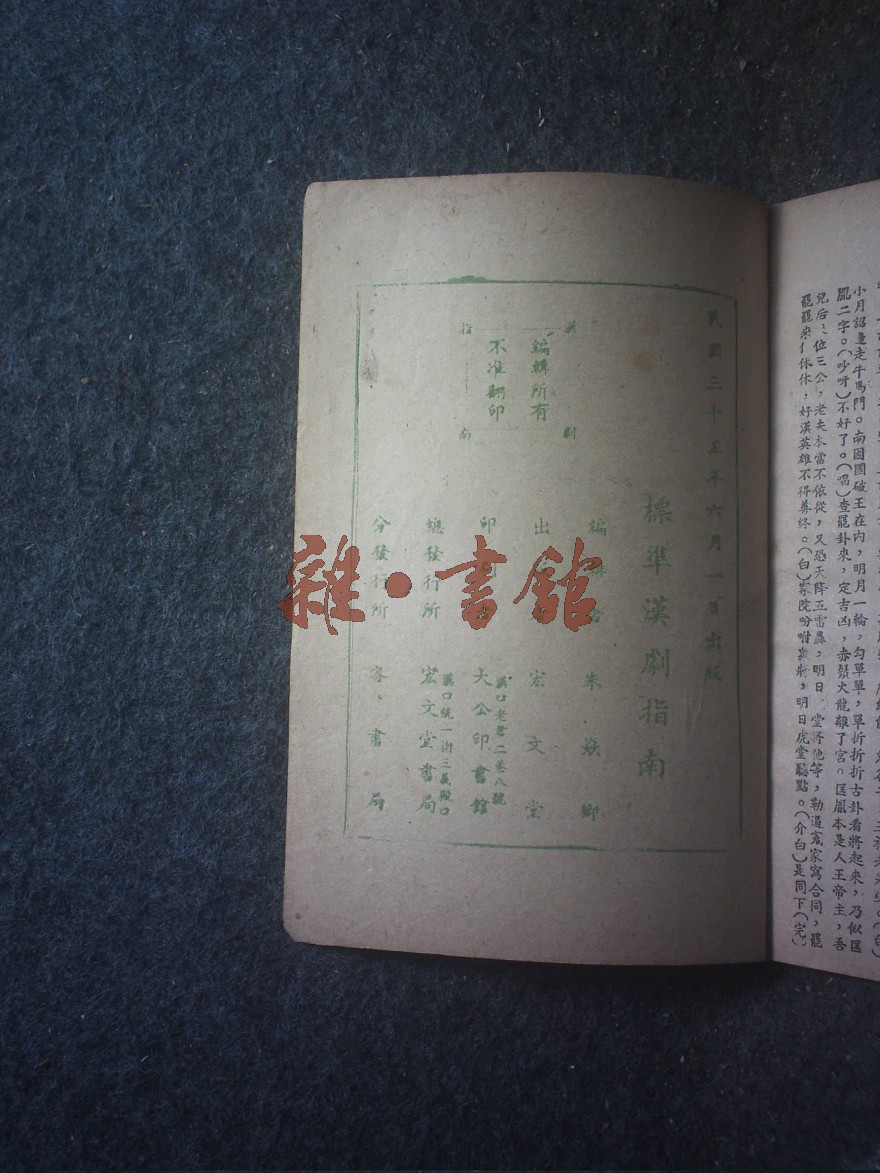 小月詔量走牛馬門。南因國破王在内，明月一輪，勾草單，單折折古卦看將起來，乃似匡
胤二字。（吵呀）不好了。（唱）查罷卦來，定吉凶，赤鬚火龍離了宮。匡胤本是人王帝主，吾
兄后〻位三公，老夫本當不依從，又恐天降五雷轟，明日 堂將他等，勒逼寡家寫合同，罷
罷罷來亻休休，好漢英雄不得善終。（白）家院吩咐 ，明日虎堂聽點。（介白）是同下（完）
民國三十五年六月一日出版
標準漢劇指南
編輯 朱焱卿
出 宏文堂
漢口老君二巷八號
印 大公印書館
漢口統一街三義殿口
總發行所 宏文堂書局
分發行所 各、書局
漢劇
編輯所有
不准翻印
指南
雜·書館